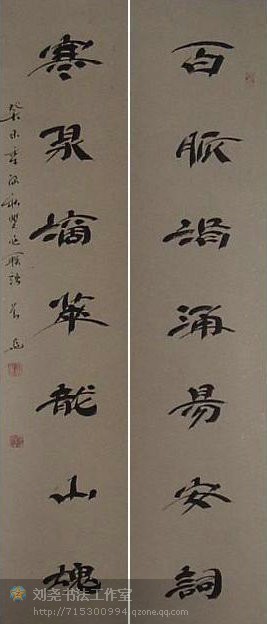 百脈渦涌易安詞
寒泉滴萃龍山魂
癸未書
刘尧书法工作室
http://715300994.qzone.qq.com